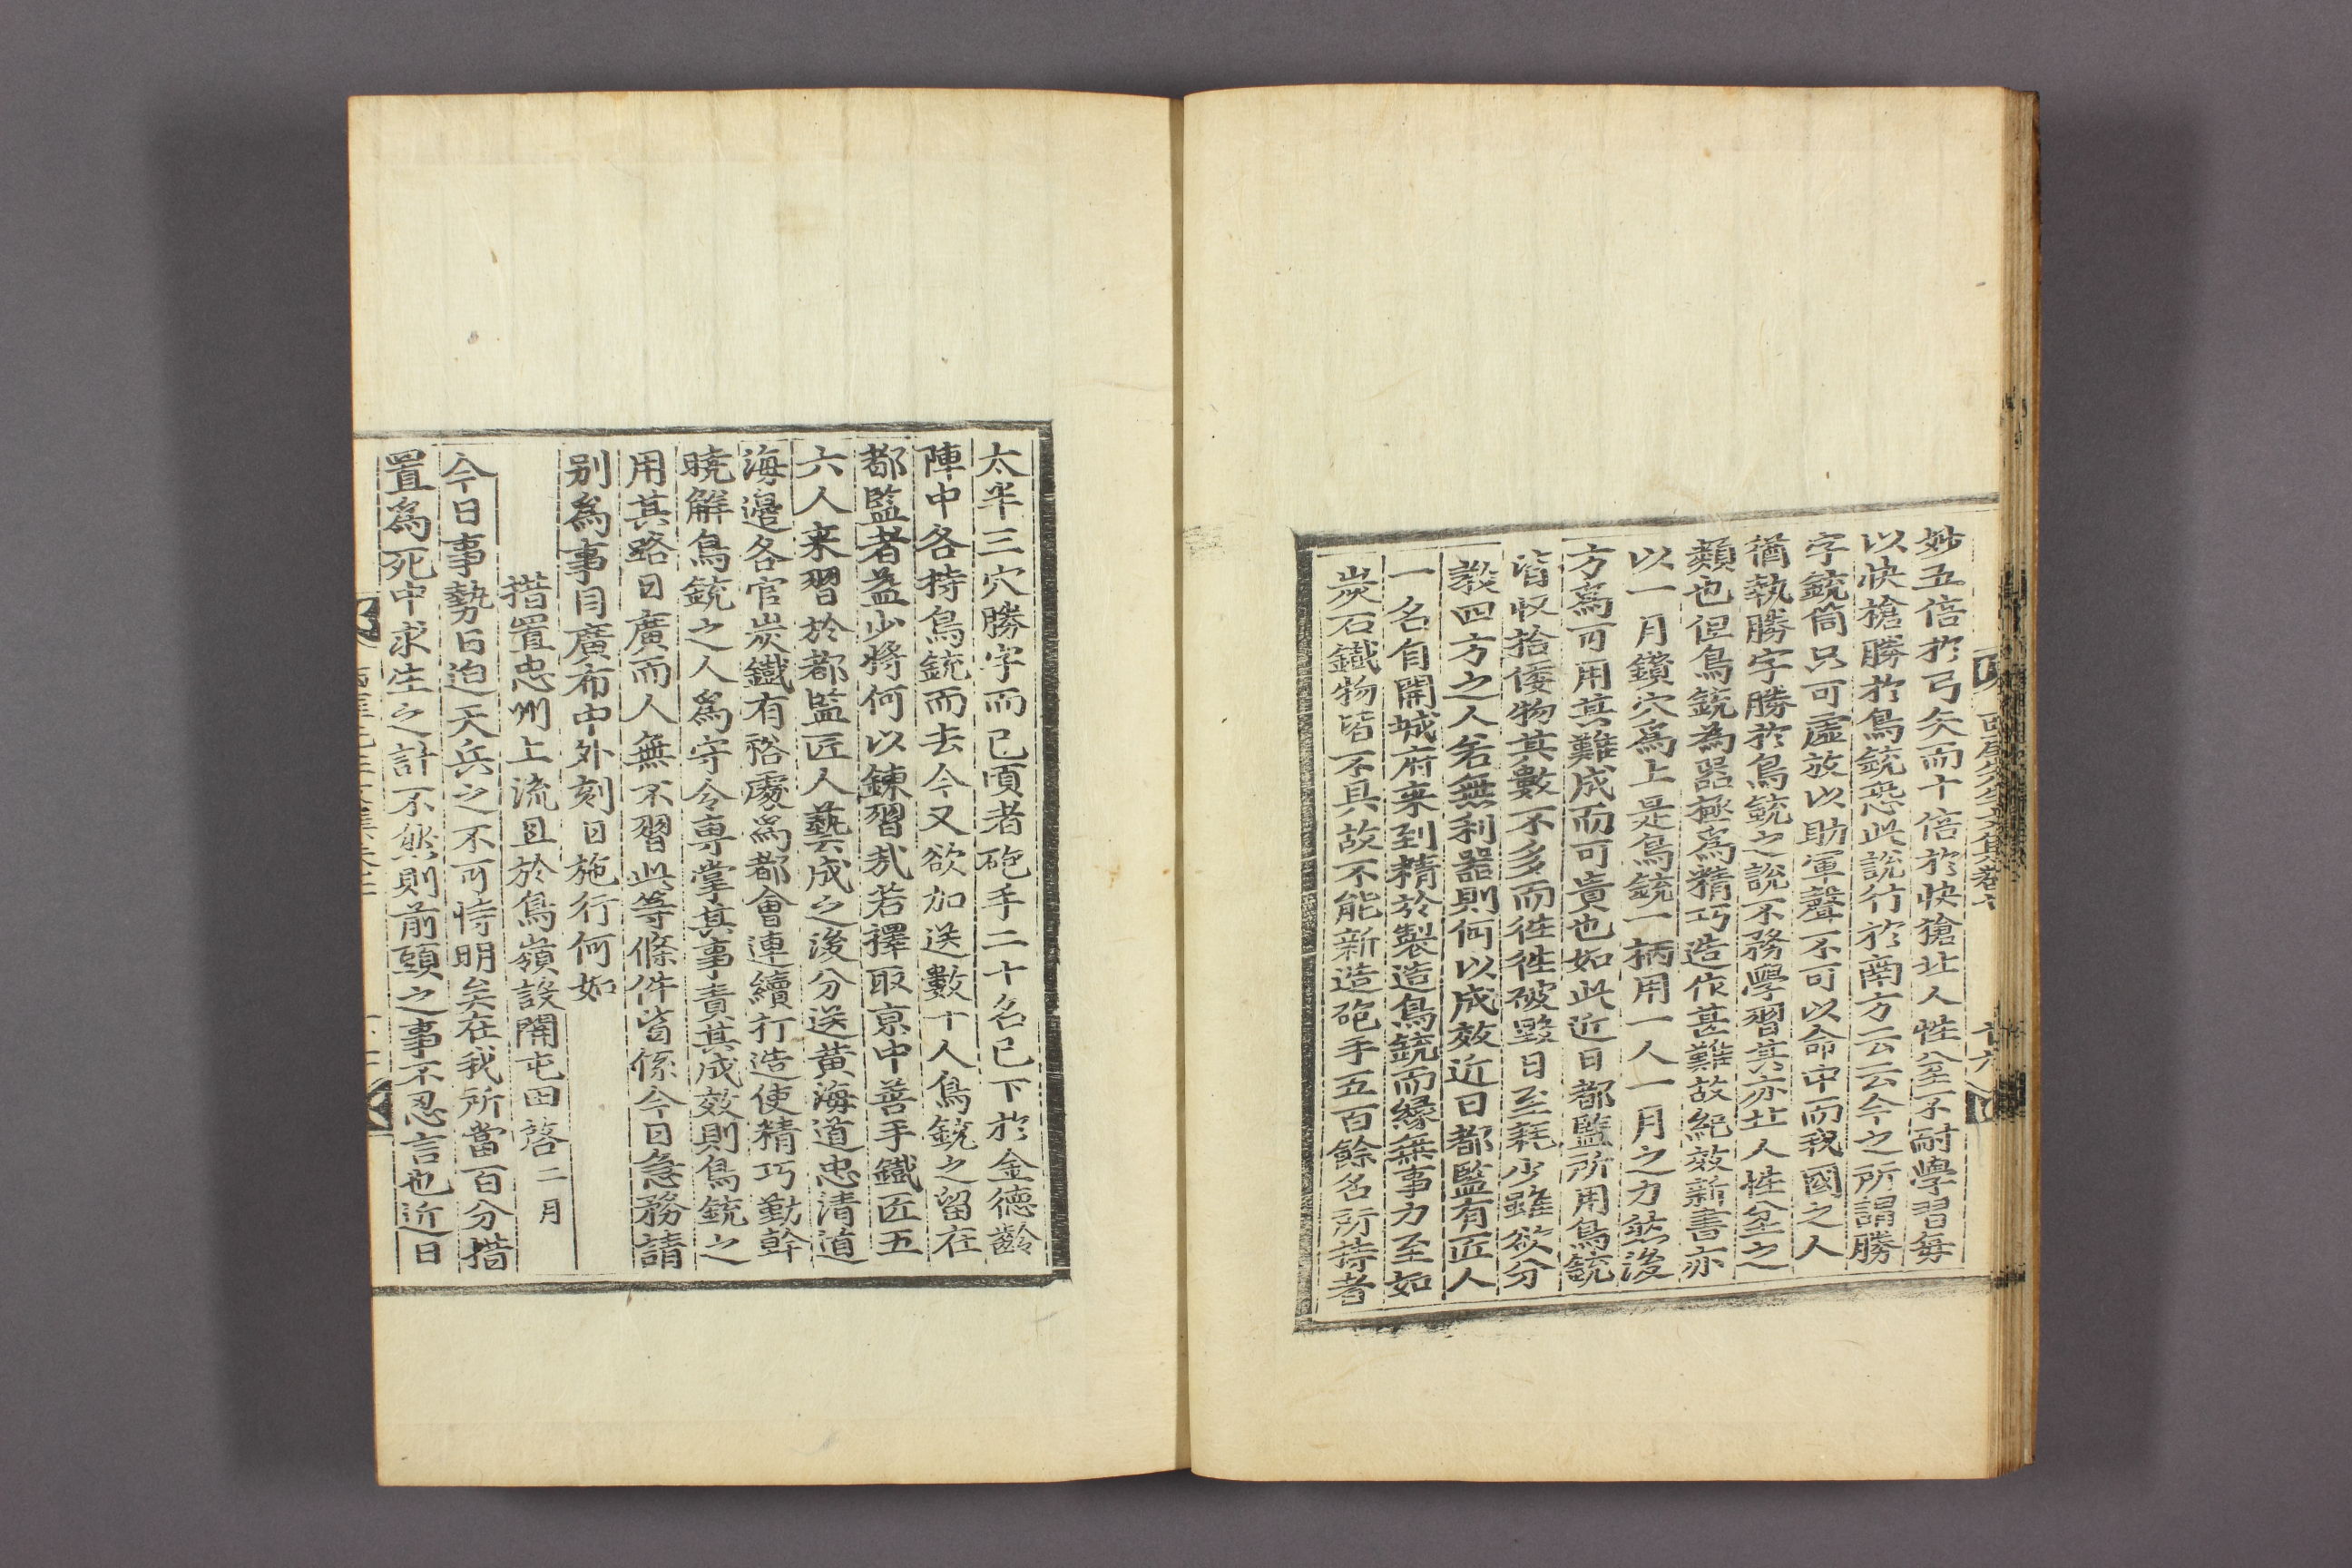 妙五倍於弓矢而十倍於快槍北人性坌不耐學習每
以快槍勝於鳥銃恐此說行於南方云云今之所謂勝
字銃筒只可虛放以助軍聲不可以命中而我國之人
猶執勝字勝於鳥銃之說不務學習其亦北人性坌之
類也但鳥銃為器極爲精巧造作甚難故紀效新書亦
以一月鑽穴爲上是鳥銃一柄用一人一月之力然後
方爲可用其難成而可貴也如此近日都監所用鳥銃
皆収拾倭物其數不多而徃徃破毀日至耗少雖欲分
教四方之人若無利器則何以成效近日都監有匠人
一名自開城府来到精於製造鳥銃而緣無事力至如
炭石鐵物皆不具故不能新造砲手五百餘名所持者
太半三穴勝字而已頃者砲手二十名已下於金德齡
陣中各持鳥銃而去今又欲加送數十人鳥銃之留在
都監者益少將何以鍊習㢤若擇取京中善手鐵匠五
六人来習於都監匠人藝成之後分送黃海道忠清道
海邊各官炭鐵有裕處爲都會連續打造使精巧勤幹
曉解鳥銃之人爲守令專掌其事責其成效則鳥銃之
用其路日廣而人無不習此等條件皆係今日急務請
別爲事目廣布中外刻日施行何如
措置忠州上流且於鳥嶺設關屯田啓 二月
今日事勢日迫天兵之不可恃明矣在我所當百分措
置爲死中求生之計不然則前頭之事不忍言也近日